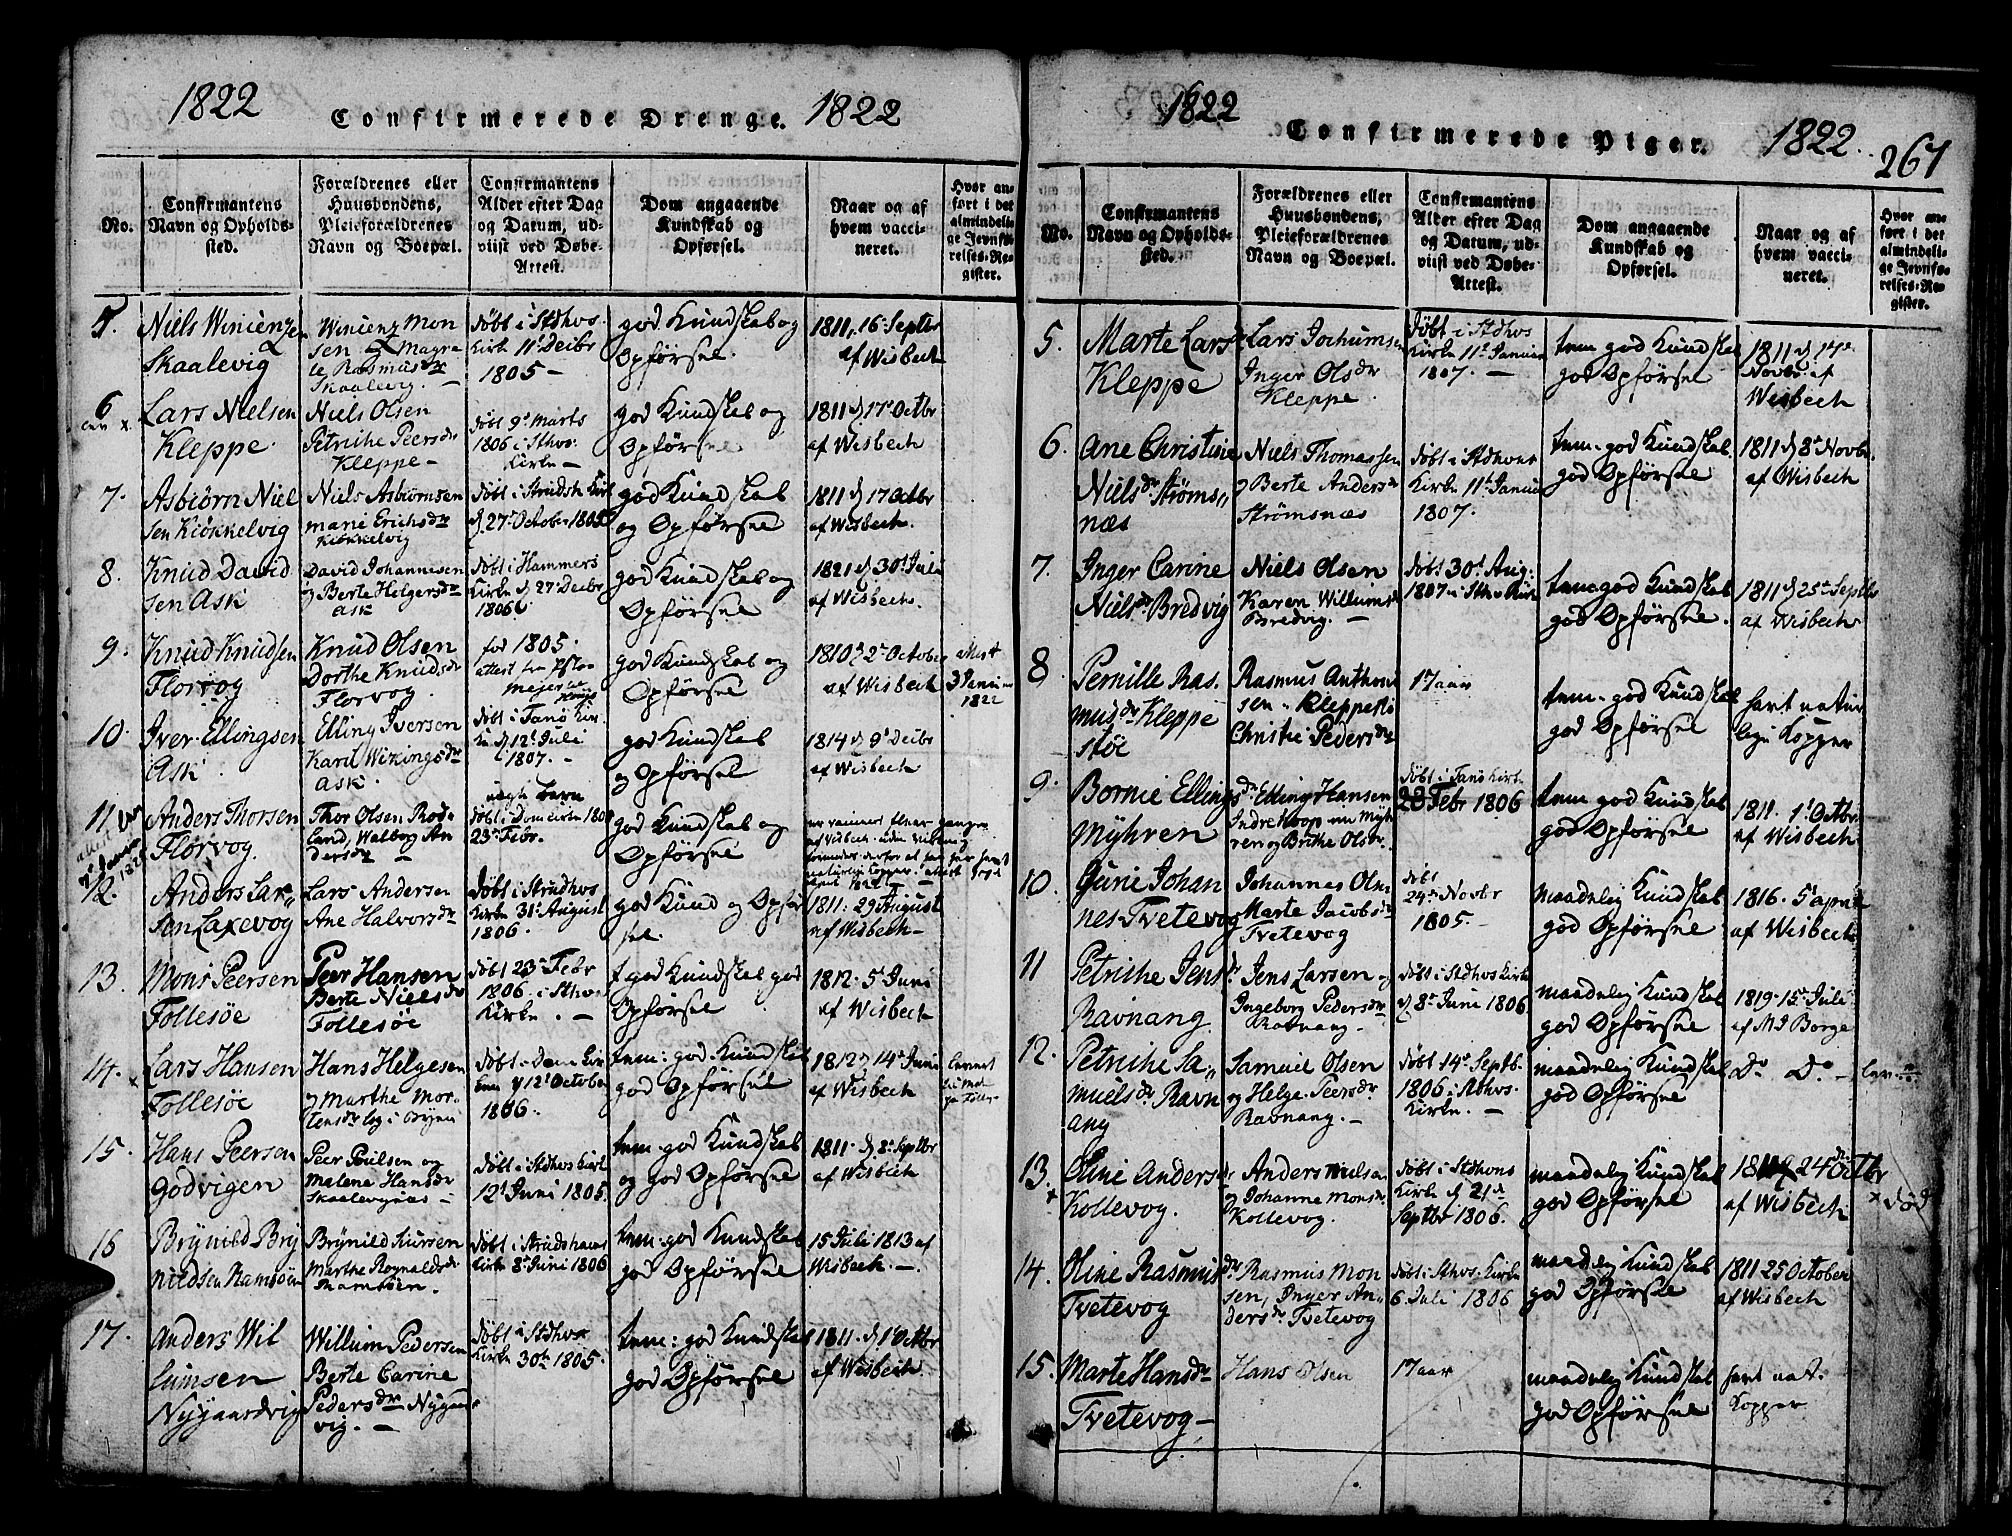 1822
Confirmerede Drenge.
1822
No.
Confirmantens
Navn og Opholds-
sted.
Forældrenes eller
Huusbondens,
Pleieforældrenes
Navn og Boepæl.
Confirmantens
Alder efter Dag
og Datum, ud-
viist ved Døbe-
Attest.
Dom angaaende
Kundskab og
Opførsel.
Naar og af
hvem vacci-
neret.
Hvor an-
ført i det
almindeli-
ge Jevnfø-
relses-Re-
gister.
5.
Niels Winienzen
Skaalevig
Winienz Mon
sen og Magre
te Rasmusdr
Skaalevig. —
døbt i Stdhvs.
Kirke 11t Decbr
1805 —
god Kundskab og
Opførsel.
1811, 16 Septbr
af Wisbech
6
Lars Nielsen
Kleppe.
Niels Olsen
Petriche Peersdr
Kleppe —
døbt 9de Marts
1806 i Sthvs.
Kirke —
god Kundskab og
Opførsel
1811 d 17de Octbr
af Wisbech
7.
Asbiørn Niel
sen Kiøkkelvig
Niels Asbiørnsen
Marie Erichsdr
Kiøkkelvig
døbt i Strudsh Kirk
d. 27de Octobr 1805
god Kundskab
og Opførsel
1811 d 17 Octbr
af Wisbech.
8.
Knud David
sen Ask
David Johannesen
og Berte Helgersdr
Ask
døbt i Hammers
Kirke d 27de Decbr
1806
god Kundskab og
Opførsel
1821 d 30t Juli
af Wisbech.
9.
Knud Knudsen
Florvog
Knud Olsen
Dorthe Knudsdr
Florvog.
før 1805.
attest fra
god Kundskab og
Opførsel
1810 d 2de October
af Wisbech
Attest
3 Januar
1822
10.
Iver Ellingsen
Ask
Elling Iversen
Kari Wikingsdr
Ask.
døbt i Fanø Kir
ke d 12t Juli
1807. —
god Kundskab
og Opførsel
1814 d 9de Decbr
af Wisbech
11.
Anders Thorsen
Florvog.
Thor Olsen Rod-
land, Walborg An
dersdr —
døbt i Domkirke
23de Febr.
god Kundskab og
Opførsel
12.
Anders Lar-
sen Laxevog
Lars Andersen
Ane Halvorsdr
døbt i Strudhvs
Kirke 31t August
1806.
god Kund og Opfør
sel.
1811. 29 August
af Wisbech —
13.
Mons Peersen
Follesøe
Peer Hansen
Berte Nielsdr
Follesøe
døbt 23de Febr
1806 i Sthvs
Kirke. —
t god Kundskab god
Opførsel
1812. 5t Juni
af Wisbech
14.
Lars Hansen
Follesøe
Hans Helgesen
og Marthe Mor-
tensdr
døbt i Dom Kir
ken d 12t October
1806.
tem: god Kundskab
god Opførsel
1812 d 14de Juni
af Wisbech
15.
Hans Peersen
Godvigen
Peer Poulsen og
Malene Hansdr
Skaalevignæs —
døbt i Stdhvs Kirk
12t Juni 1805.
tem: god Kundskab
og god Opførsel
1811. d 8de Septbr
af Wisbech
16
Brynild Bry
nildsen Ramsøen
Brynild Siursen
Marthe Roynaldsdr
Ramsøen.
døbt i Strudshavns
Kirke 8de Juni 1806
tem: god Kundskab
god Opførsel
15 Juli 1813 af
Wisbech. —
17.
Anders Wil
lumsen
Nygaardsvig
Willum Pedersen
Berte Carine
Pedersdr Nygaards
vig. —
døbt i Stdhvs
Kirke 1805.
tem: god Kundskab
god Opførsel
1811. d 1t Octbr
af Wisbech
1822
Confirmerede Piger.
1822.
267
No.
Confirmantens
Navn og Opholds-
sted.
Forældrenes eller
Huusbondens,
Pleieforældrenes
Navn og Boepæl.
Confirmantens
Alder efter Dag
og Datum, ud-
viist ved Døbe-
Attest.
Dom angaaende
Kundskab og
Opførsel.
Naar og af
hvem vacci-
neret.
Hvor an-
ført i det
almindeli-
ge Jevnfø-
relses-Re-
gister.
5.
Marte Larsdr
Kleppe
Lars Jochumsen
Inger Olsdr
Kleppe.
døbt i Stdhvs
Kirke 11t Januar
1807. —
tem god Kundskab
god Opførsel
1811 d 17de
Novbr af
Wisbech
6.
Ane Christine
Nielsdr Strøms-
næs
Niels Thomassen
og Berte Andersdr
Strømsnæs
døbt i Stdhvns
Kirke 11t Januar
1807.
tem. god Kundskab
god Opførsel
1811 d 8de Novbr.
af Wisbech
7.
Inger Carine
Nielsdr Bredvig
Niels Olsen
Karen Willumsdr
Bredvig. —
døbt 30t Aug:
1807 i Sthvs Kirke
tem god Kundskab
god Opførsel.
1811 d 25de Septbr
af Wisbech
8
Pernille Ras.
musdr Kleppe
støe
Rasmus Anthoni
sen Kleppestø
Christie Pedersdr
17 aar
tem. god Kundskab
god Opførsel
havt natur
lige Kopper
9.
Bornie Ellingsdr
Myhren
Elling Hansen
og Brithe Olsdr.
døbt i Fanø Kirke
28 Febr 1806
tem god Kundskab
god Opførsel
1811. 1t Octbr
af Wisbech
10.
Guni Johan
nes Tvetevog
Johannes Olsen
Marte Jacobsdr
Tvetevog
døbt
24de Novbr
1805. —
maadelig Kundskab
god Opførsel
1816. 5t April
af Wisbech
11
Petriche Jensdr
Ravnang
Jens Larsen og
Ingeborg Pedersdr
Ravnang. —
døbt i Stdhvs Kirke
d 8de Juni 1806
maadelig Kundskab
god Opførsel
1819. 15de Juli
af M J Borge
12.
Petriche Sa-
muelsdr Ravn
ang
Samuel Olsen
og Helge Peersdr
Ravnang. —
døbt 14de Septb.
1806 i Sthvs.
Kirke. —
maadelig Kundskab
god Opførsel
Do Do —
13.
Oline Andersdr
Kollevog.
Anders Nielsen
og Johanne Monsdr
Kollevog.
døbt i Stdhvns
Kirke d 21de
Septbr 1806.
maadelig Kundskab
god Opførsel
24de Octbr
af Wisbech
× død
14.
Oline Rasmusdr
Tvetevog
Rasmus Mon
sen, Inger An-
dersdr Tvetevog
døbt i Sthvs. Kirke
6. Juli 1806
maadelig Kundskab
god Opførsel
1811 25 October
af Wisbech
15.
Marte Hansdr
Tvetevog —
Hans Olsen
17 aar
maadelig Kundskab
god Opførsel
havt nat.
Kopper